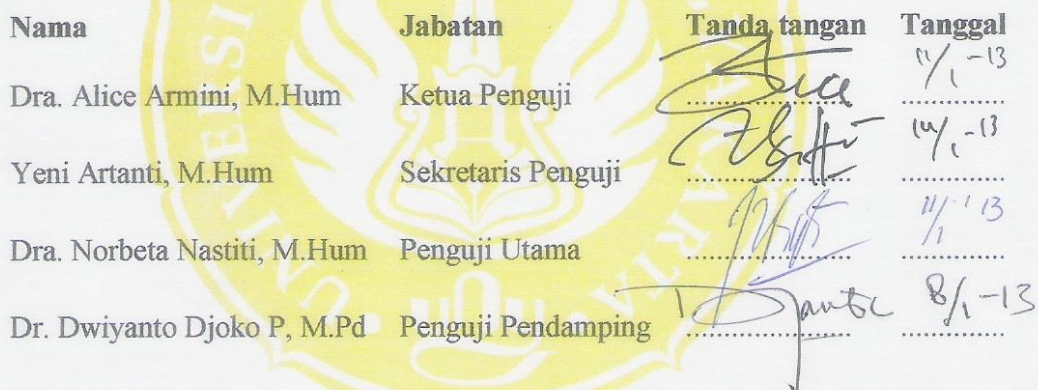 Nama Jabatan Tanda tangan Tanggal
Dra. Alice Armini, M.Hum Ketua Penguji ................ 11/1-13
Yeni Artanti, M.Hum Sekretaris Penguji ................ 14/1-13
Dra. Norbeta Nastiti, M.Hum Penguji Utama ................ 11/1 13
Dr. Dwiyanto Djoko P, M.Pd Penguji Pendamping ................ 8/1-13